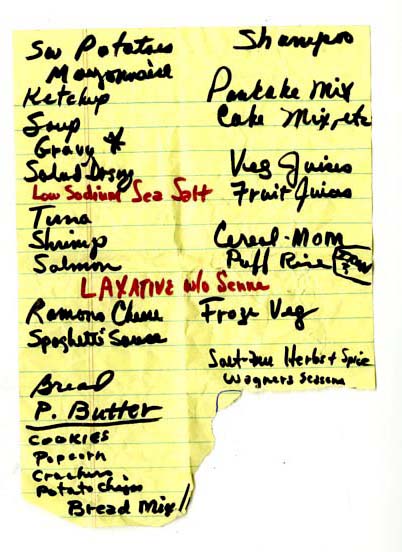 Sw Potatoes
Mayonnaise
Ketchup
Soup
Gravy *
Salad Drsng
Low Sodium Sea Salt
Tuna
Shrimp
Salmon
LAXATIVE w/o Senna
Romano Cheese
Spaghetti Sauce
Bread
P. Butter
Cookies
Popcorn
Crackers
Potato Chips
Bread Mix
Shampoo
Pankake Mix
Cake Mix, etc
Veg Juices
Fruit Juices
Cereal-Mom
Puff Rice
Froze Veg
Salt-free Herbs + Spice
Wagners Seasons